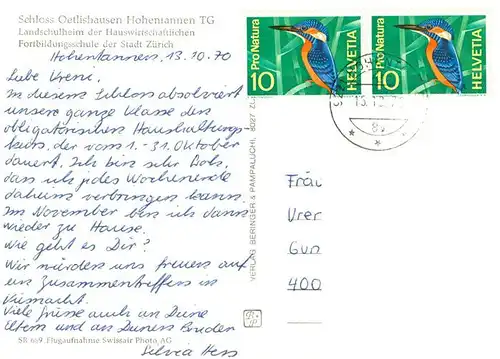 Schloss Oetlishausen Hohentannen TG
Landschulheim der Hauswirtschaftlichen
Fortbildungsschule der Stadt Zürich
Hohentannen, 13.10.70
Liebe Vreni,
In diesem Schloss absolviert
unsere ganze Klasse den
obligatorischen Haushaltungs-
kurs, der vom 1. - 31. Oktober
dauert. Ich bin sehr froh,
dass ich jedes Wochenende
daheim verbringen kann.
Im November bin ich dann
wieder zu Hause.
Wie geht es Dir?
Wir würden uns freuen auf
ein Zusammentreffen in
Viele Grüsse auch an Deine
Eltern und an Deinen Bruder
Silvia Hess
SR 669 Flugaufnahme Swissair Photo AG
VERLAG BERINGER & PAMPALUCHI, 8027
Pro Natura
10
HELVETIA
Pro Natura
10
HELVETIA
Frau
Vrer
Gun
400